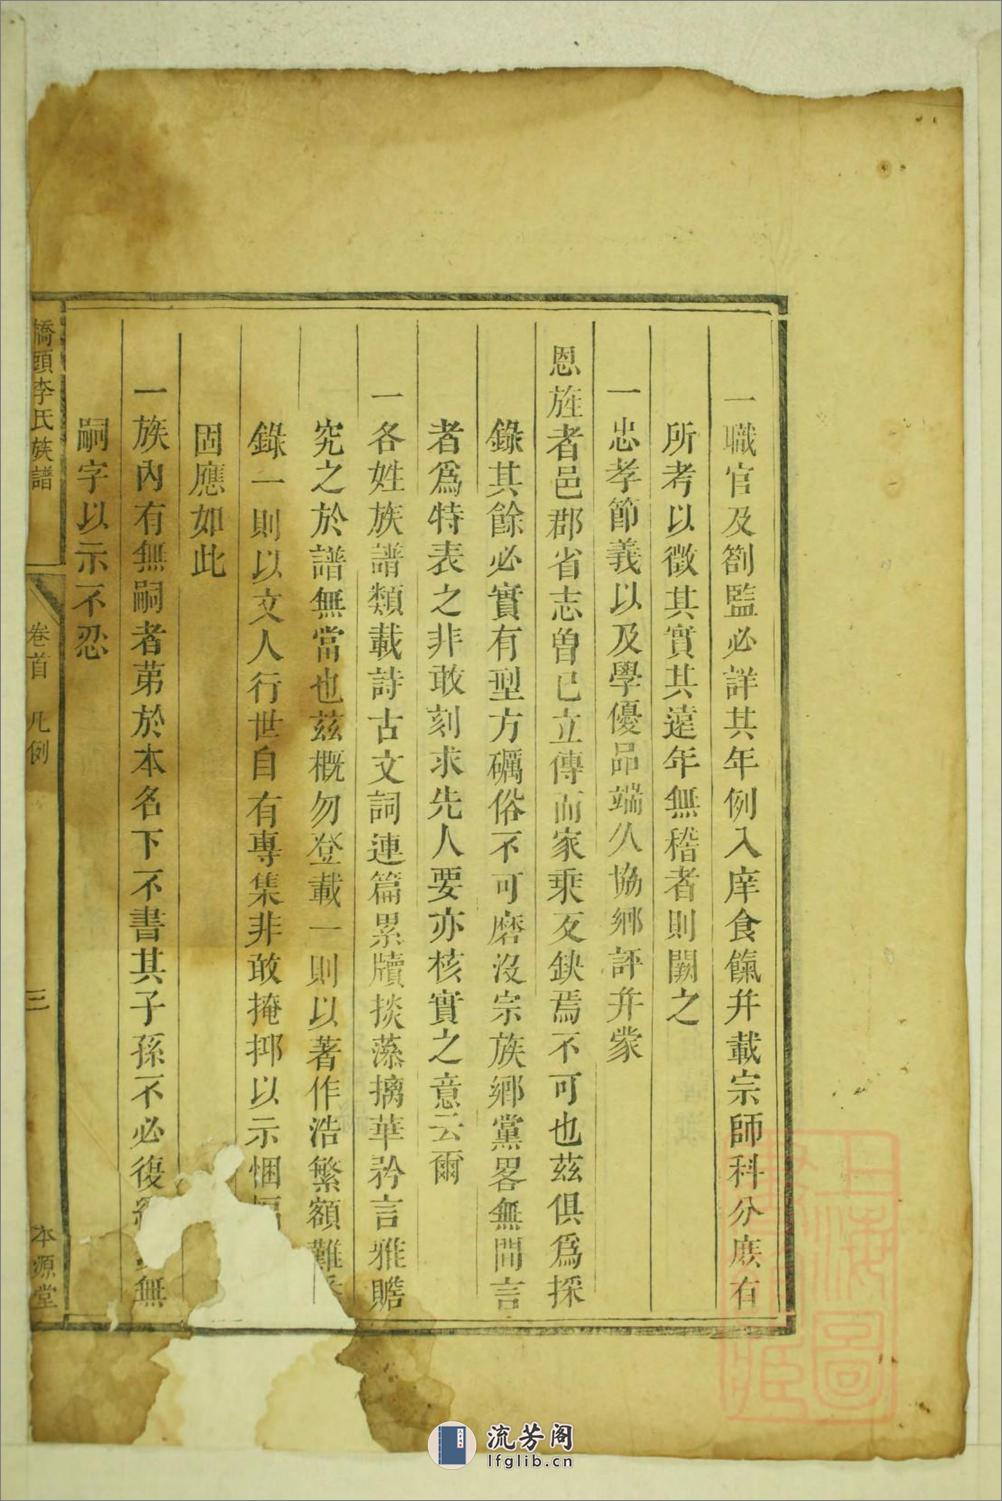 一職官及劄監必詳其年例入庠食餼幷載宗師科分庶有
所考以徵其實其遠年無稽者則闕之
一忠孝節義以及學優品端久協鄉評幷蒙
恩旌者邑郡省志曾已立傳而家乘反缺焉不可也茲俱爲採
錄其餘必實有型方礪俗不可磨沒宗族鄉黨畧無間言
者爲特表之非敢刻求先人要亦核實之意云爾
一各姓族譜類載詩古文詞連篇累牘掞藻摛華矜言雅贍
究之於譜無當也茲概勿登載一則以著作浩繁額難
錄一則以文人行世自有專集非敢掩抑以示悃
固應如此
一族內有無嗣者苐於本名下不書其子孫不必復 無
嗣字以示不忍
橋頭李氏族譜 卷首 凡例 三 本源堂
上海圖書館藏
流芳阁
lfglib.cn